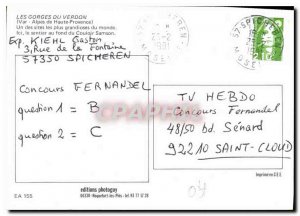 LES GORGES DU VERDON
(Var - Alpes de Haute-Provence)
Un des sites les plus grandioses du monde.
Ici, le sentier au fond du Couloir Samson.
Exp. KIEHL Gaston
3, Rue de la Fontaine
57350 SPICHEREN
Concours FERNANDEL
question 1 = B
question 2 = C
57 SPICHEREN
MOSELLE
TV HEBDO
Concours Fernandel
48/50 bd. Sénard
92210 SAINT-CLOUD
EA 155
editions photoguy
Imprimé en C.E.E.